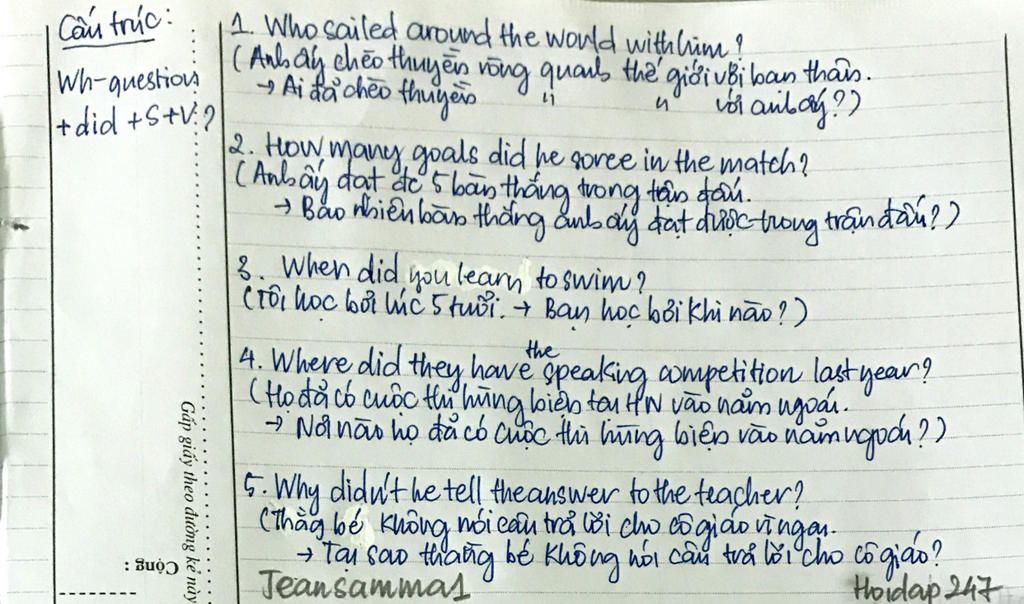 Cấu trúc:
Wh-question
+ did + S + V?
1. Who sailed around the would with him?
(Anh ấy chèo thuyền vòng quanh thế giới với bạn thân.
→ Ai đã chèo thuyền " " với anh ấy?)
2. How many goals did he soree in the match?
(Anh ấy đạt đc 5 bàn thắng trong trận đấu.
→ Bao nhiêu bàn thắng anh ấy đạt được trong trận đấu?)
3. When did you learn to swim?
(Tôi học bơi lúc 5 tuổi. → Bạn học bơi khi nào?)
4. Where did they have the speaking competition last year?
(Họ đã có cuộc thi hùng biện tại HN vào năm ngoái.
→ Nơi nào họ đã có cuộc thi hùng biện vào năm ngoái?)
5. Why didn't he tell the answer to the teacher?
(Thằng bé không nói câu trả lời cho cô giáo vì ngại.
→ Tại sao thằng bé không nói câu trả lời cho cô giáo?
Gấp giấy theo đường kẻ này
Cộng :
Jeansamma1
Hoidap247